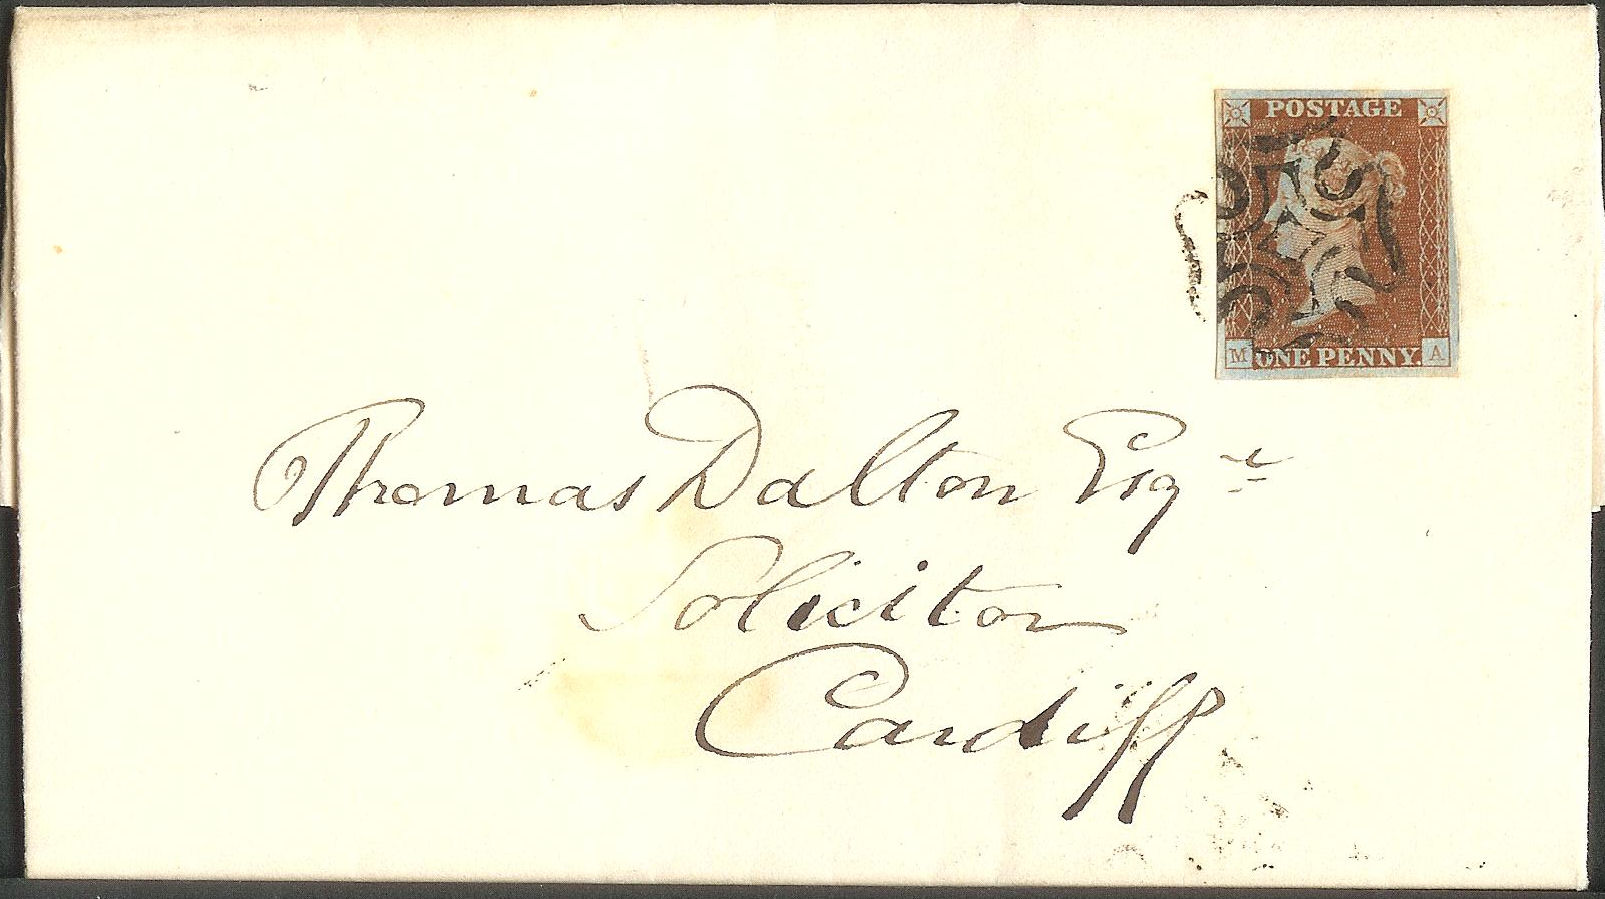 POSTAGE
M ONE PENNY. A
Thomas Dalton Esqre
Solicitor
Cardiff